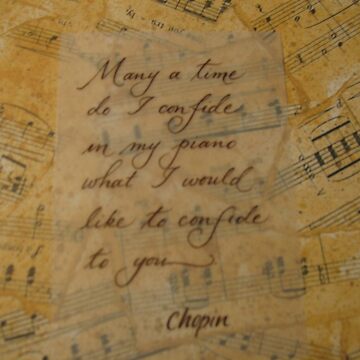 Many a time
do I confide
in my piano
what I would
like to confide
to you
Chopin